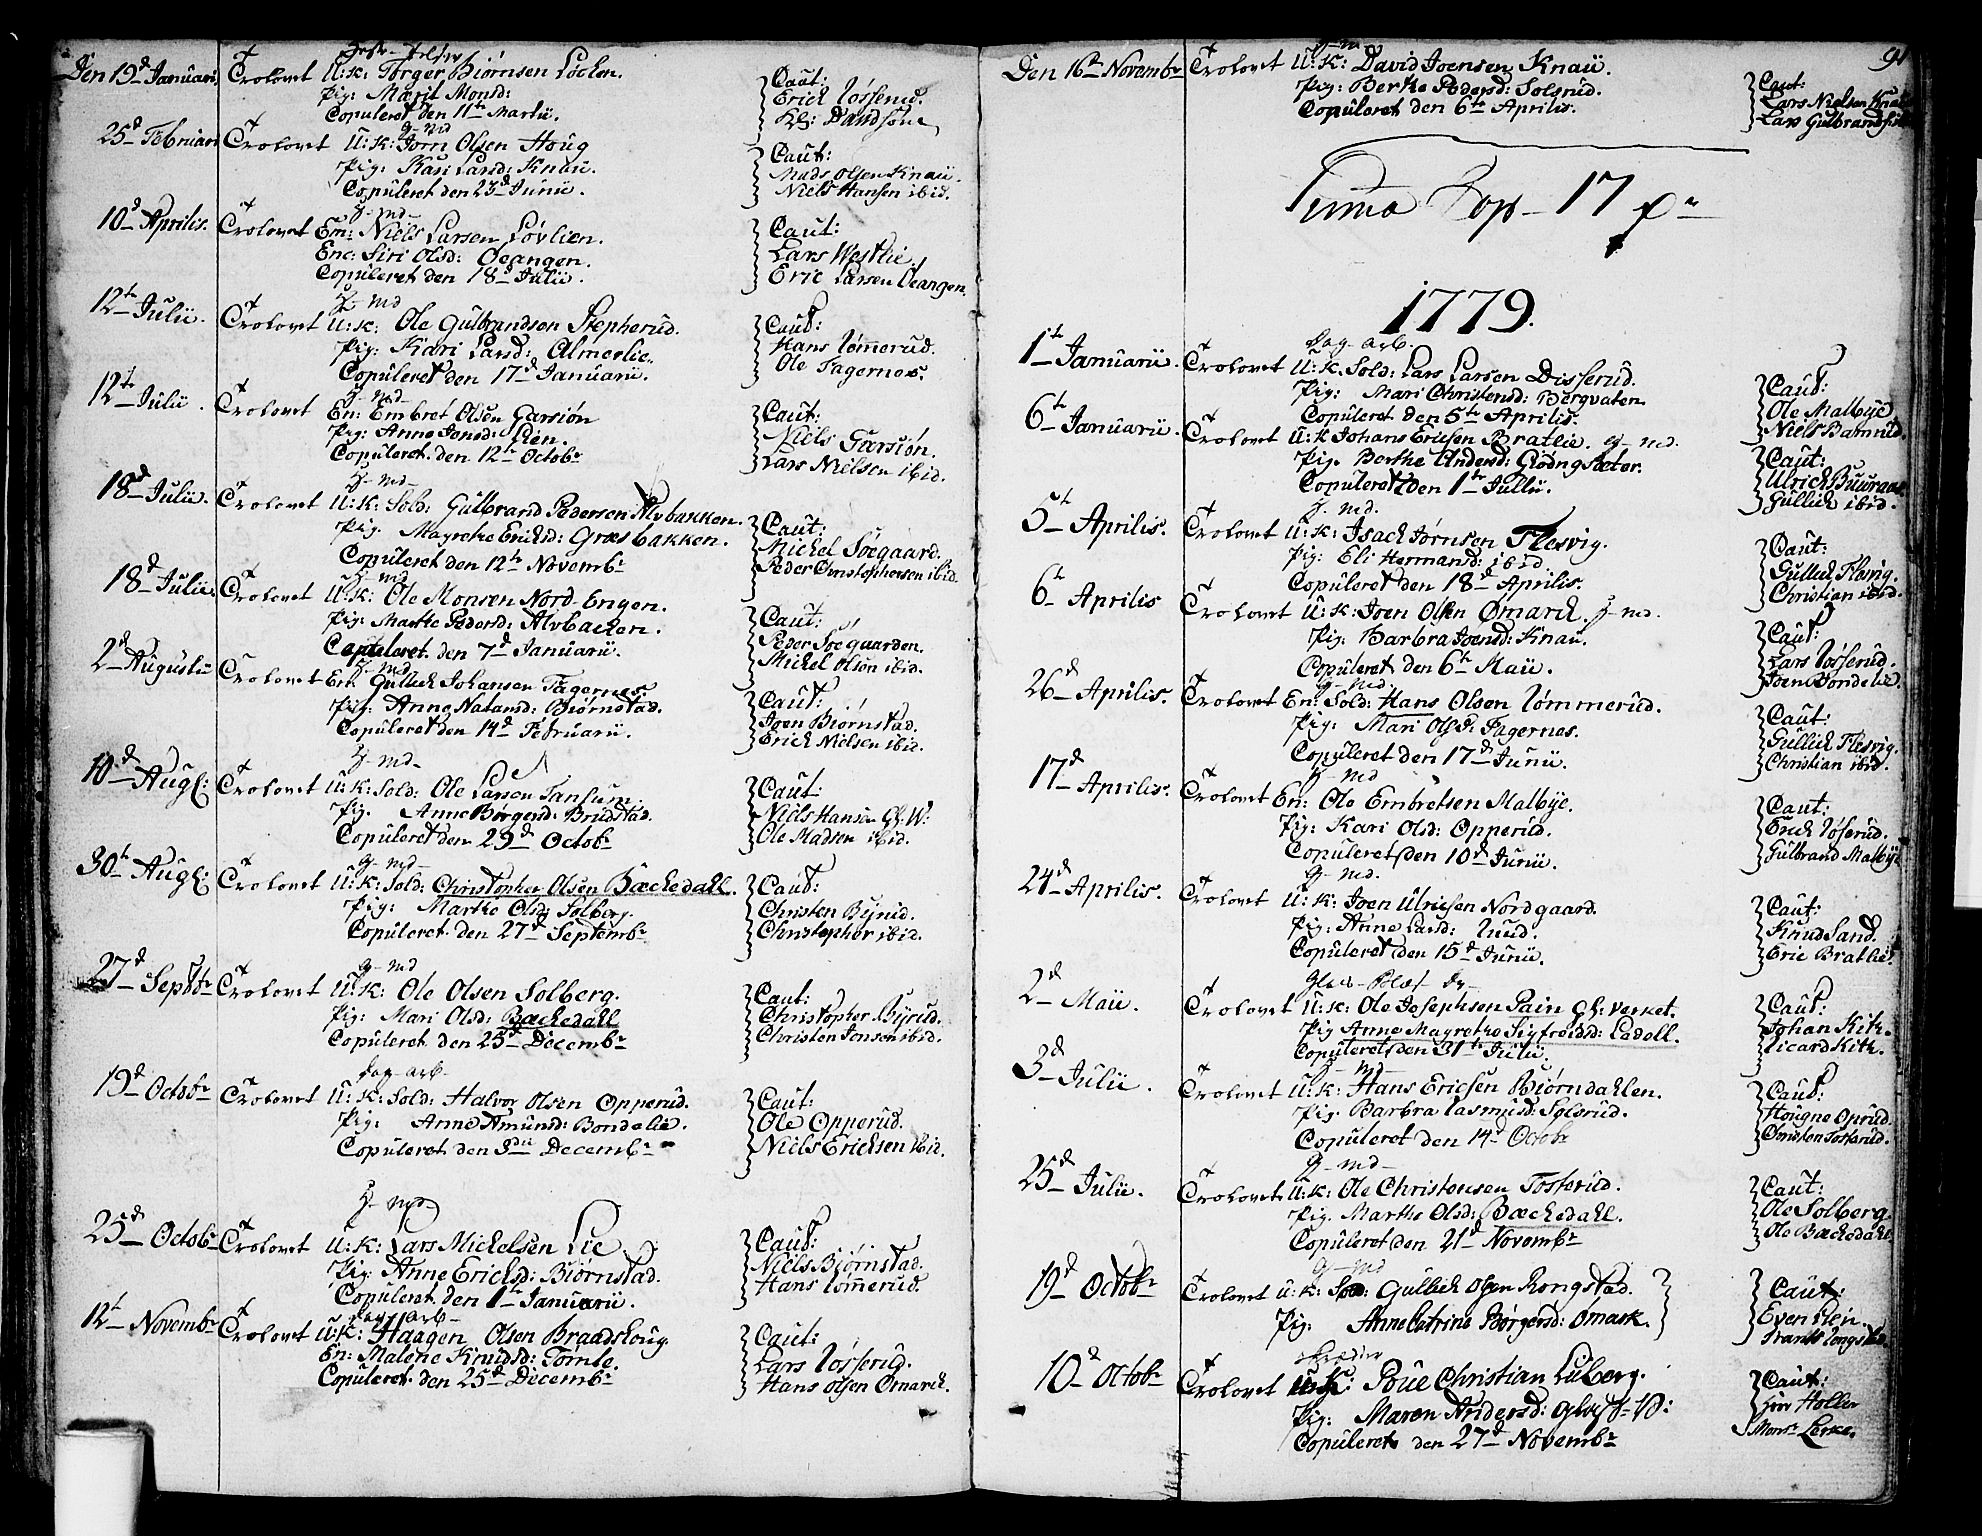 Den 19d Januari Trolovet U: K: Torger Biørnsen Løcken.
Pig: Marit Monsd:
Copuleret den 11te Martii.
Caut:
Erick Røsserud.
25d Februari Trolovet
g-md
U: K: Jørn Olsen Houg
Pig: Kari Larsd: Knau.
Copuleret den 23d Junii.
Caut:
Mads Olsen Knau.
Niels Hansen ibid.
10d Aprilis. Trolovet
g-md
Em: Niels Larsen Løvlien.
Enc: Siri Olsd: Oeangen.
Copuleret den 18d Julii.
Caut:
Lars Westlie.
Eric Larsen Oeangen.
12te Julii. Trolovet
g-md
U: K: Ole Gulbrandsen Stepherud.
Pig: Kari Larsd: Almerlie.
Copuleret den 17d Januarii.
Caut:
Hans Rømmerud.
Ole Fagernes.
12te Julii. Trolovet
g-md
En: Embret Olsen Garsiøn
Pig: Anne Jonsd: Lien.
Copuleret den 12te Octobr
Caut:
Niels Garsiøn.
Lars Nielsen ibid.
18d Julii. Trolovet
g-md
U: K: Sold: Gulbrand Pedersen Alvbakken.
Pig: Magrethe Ericksd: Græsbakken.
Copuleret den 12te Novembr
Caut:
Mickel Søegaard.
Peder Christophersen ibid.
18d Julii. Trolovet
g-md
U: K: Ole Monsen Nord-Engen.
Pig: Marthe Pedersd: Alvbacken.
Copuleret den 7d Januarii.
Caut:
Peder Søegaarden.
Mickel Olsøn ibid.
2d Augustii Trolovet
g-md
Enk: Gullick Johansen Fagernes
Pig: Anne Natansd: Biørnstad.
Copuleret den 14d Februarii.
Caut:
Joen Biørnstad.
Erick Nielsen ibid.
10d Aug: Trolovet
g-md
U: K: Sold: Ole Larsen Tansum.
Pig: Anne Børgersd: Brudstad.
Copuleret den 29d Octobr
Caut:
Niels Hansen Gl: W:
Ole Madsen ibid.
30te Aug: Trolovet
g-md
U: K: Sold: Christopher Olsen Bæckedahl.
Pig: Marthe Olsd: Solberg.
Copuleret den 27d Septembr
Caut:
Christen Byrud.
Christopher ibid.
27d Septbr Trolovet
g-md
U: K: Ole Olsen Solberg.
Pig: Mari Olsd: Bæckedahl
Copuleret den 25d Decembr
Caut:
Christopher Byrud.
Christen Jensen ibid.
19d Octobr Trolovet
dag-arb-
U: K: Sold: Halvor Olsen Opperud.
Pig: Anne Amunsd: Bondelie.
Copuleret den 3die Decembr
Caut:
Ole Opperud.
Niels Ericksen ibid.
25d Octobr Trolovet
g-md
U: K: Lars Mickelsen Lie
Pig: Anne Ericksd: Biørnstad.
Copuleret den 1te Januarii.
Caut:
Niels Biørnstad.
Hans Rømmerud.
12te Novembr Trolovet
dag-arb-
U: K: Haagen Olsen Braadskoug.
En: Malene Knudsd: Tomte.
Copuleret den 25d Decembr
Caut:
Lars Røsserud.
Hans Olsen Omarck.
91
Den 16d Novembr Trolovet
g-m
U: K: David Joensen Knau.
Pig: Berthe Pedersd: Solsrud.
Copuleret den 6te Aprilis.
Caut:
Lars Nielsen Knau
Lars Gulbrands
Suma Cop- 17 p
1779.
1te Januarii Trolovet
Dag-arb.
U: K: Sold: Lars Larsen Disserud.
Pig: Mari Christensd: Bergvaten.
Copuleret den 5te Aprilis.
Caut:
Ole Malbye
Niels Bamrud.
6te Januarii. Trolovet U: K Johans Ericsen Bratlie. g-md.
Pig. Berthe Andersd: Grøngsæter.
Copuleret den 1te Julii.
Caut:
Ulrich Buuraas
Gullick ibid.
5te Aprilis. Trolovet
g-md.
U: K: Isach Jørnsen Flesvig.
Pig: Eli Hermansd: ibid
Copuleret den 18d Aprilis.
Caut:
Gullick Flesvig.
Christian ibid.
6te Aprilis Trolovet U: K: Joen Olsen Omarck. g-md.
Pig: Barbra Joensd: Knau.
Copuleret den 6te Maii.
Caut:
Lars Røsserud.
Joen Bondelie.
26d Aprilis. Trolovet
g-md.
En: Sold: Hans Olsen Rømmerud.
Pig: Mari Olsd: Fagernes.
Copuleret den 17d Junii.
Caut:
Gullick Flesvig.
Christian ibid.
17d Aprilis. Trolovet
g-md
En: Ole Embretsen Malbye.
Pig: Kari Olsd: Opperud.
Copuleret den 10d Junii.
Caut:
Erick Røserud.
Gulbrand Malbye
24d Aprilis. Trolovet
g-md.
U: K: Joen Ulricsen Nordgaard.
Pig: Anne Larsd: Ruud.
Copuleret den 15d Junii.
Caut:
Knud Sand.
Eric Bratlie
2d Maii. Trolovet
U: K: Ole Josephsen Pain Gl: verket.
Pig Anne Magrethe Sigfriedsd: Cadell.
Copuleret den 31te Julii.
Caut:
Johan Kith.
Ricard Kith.
3d Julii. Trolovet
g-md-
U: K: Hans Ericsen Biørndahlen.
Pig. Barbra Rasmusd: Solsrud.
Copuleret den 14d Octobr
Caut:
Hougne Oprud.
Christen Tosserud.
25d Julii. Trolovet
g-md-
U: K: Ole Christensen Tosserud.
Pig. Marthe Olsd: Bæckedahl.
Copuleret den 21d Novembr
Caut:
Ole Solberg.
Ole Bæckedahl
19d Octobr Trolovet
g-md
U: K: Sold: Gullick Olsen Rongstad.
Pig: Anne Catrine Børgersd: Omark.
Caut:
Even Lien.
10d Octobr Trolovet
skræder
U: K: Poue Christian Luberg.
Pig: Maren Andersd: Glas-V:
Copuleret den 27d Novembr
Caut:
Hr Holler
Monsr Lerke.